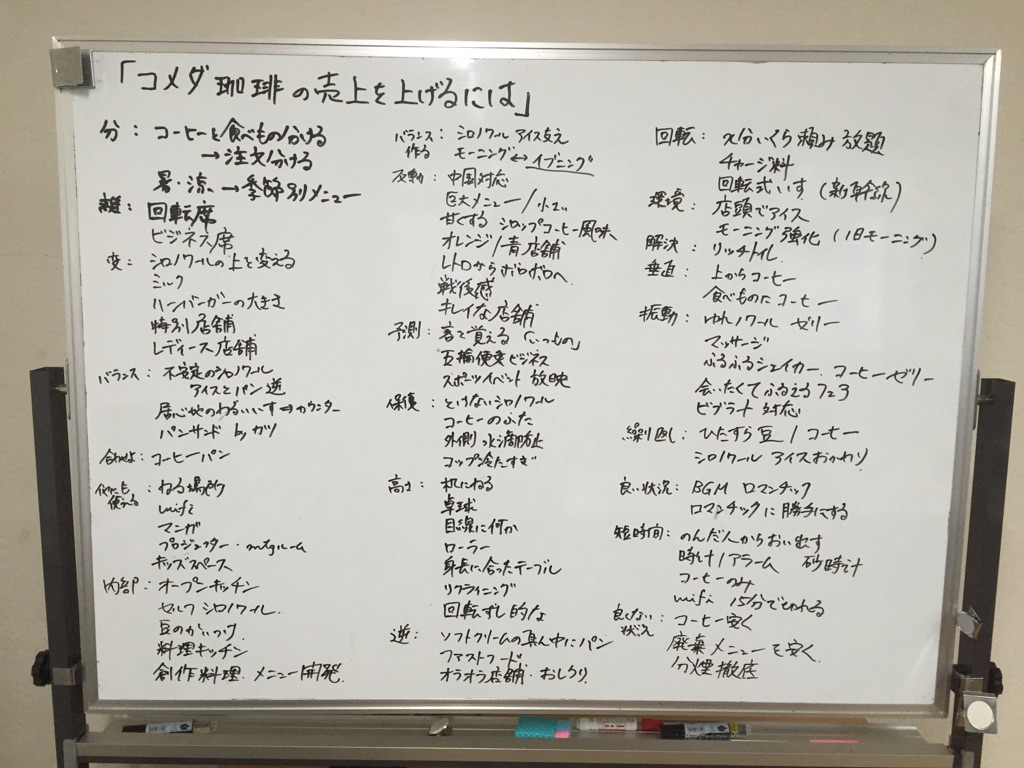 「コメダ珈琲の売上を上げるには」
分： コーヒーと食べもの分ける
→注文分ける
暑・涼 → 季節別メニュー
離： 回転席
ビジネス席
変： シロノワールの上を変える
ミルク
ハンバーガーの大きさ
特別店舗
レディース店舗
バランス： 不安定のシロノワール
アイスとパン 逆
居心地のわるいいす⇔カウンター
パンサンド by カツ
合わせよ： コーヒーパン
他にも使える： ねる場所
wifi
マンガ
プロジェクター・mtgルーム
キッズスペース
内部： オープンキッチン
セルフ シロノワール
豆の
料理キッチン
創作料理・メニュー開発
バランス作る： シロノワール アイス支え
モーニング↔イブニング
反動： 中国対応
巨大メニュー/小エ
甘くする シロップコーヒー風味
オレンジ/青店舗
レトロからボロボロへ
戦後感
キレイな店舗
予測： 客を覚える「いつもの」
五輪便乗ビジネス
スポーツイベント 放映
保優： とけないシロノワール
コーヒーのふた
外側 水滴防止
コップ冷たすぎ
高さ： 机にねる
卓球
目線に何か
ローラー
身長に合ったテーブル
リクライニング
回転ずし的な
逆： ソフトクリームの真ん中にパン
ファストフード
オラオラ店舗・おしり
回転： x分いくら 頼み放題
チャージ料
回転式いす（新幹線）
環境： 店頭でアイス
モーニング強化（1日モーニング）
解決： リッチトイレ
垂直： 上からコーヒー
食べものにコーヒー
振動： ゆれノワール ゼリー
マッサージ
ふるふるシェイカー コーヒーゼリー
会いたくてふるえるフェス
ビブラート対応
繰り返し： ひたすら豆/コーヒー
シロノワール アイスおかわり
良い状況： BGM ロマンチック
ロマンチックに勝手にする
短時間： のんだ人からおい出す
時計/アラーム 砂時計
コーヒーのみ
wifi 15分できれる
良くない状況： コーヒー安く
廃棄メニューを安く
分煙徹底